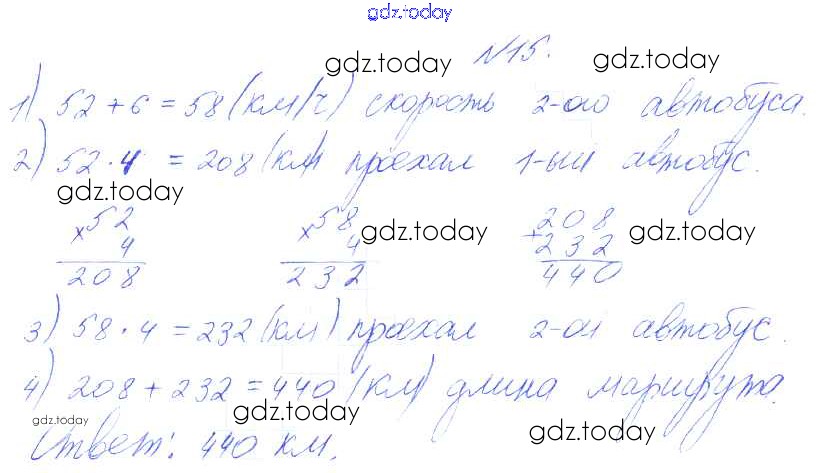 gdz.today
№15.
gdz.today gdz.today
1) 52 + 6 = 58 (км/ч) скорость 2-ого автобуса.
2) 52 · 4 = 208 (км) проехал 1-ый автобус.
gdz.today
×52 ×58 +208
4 4 232
gdz.today gdz.today
208 232 440
3) 58 · 4 = 232 (км) проехал 2-ой автобус.
4) 208 + 232 = 440 (км) длина маршрута.
gdz.today gdz.today gdz.today
Ответ: 440 км.